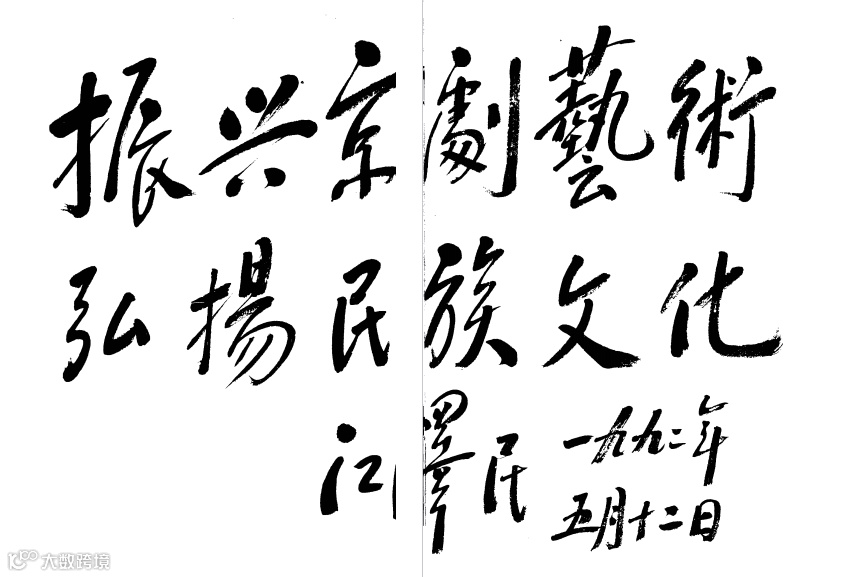 振兴京劇藝術
弘揚民族文化
江澤民
一九九二年
五月十二日
大数跨境